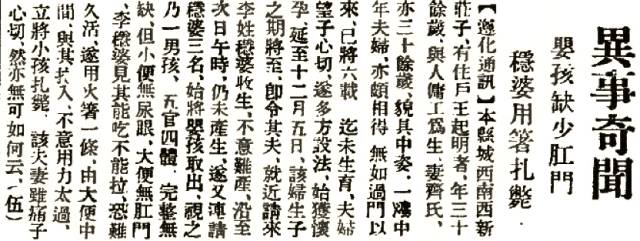 異事奇聞
嬰孩缺少肛門
穩婆用箸扎斃
【遵化通訊】本縣城西南西新
莊子，有住戶王起明者，年三十
餘歲，與人傭工爲生，妻齊氏，
亦三十餘歲，貌具中姿，一鴻中
年夫婦，亦頗相得，無如過門以
來，已將六載，迄未生育，夫婦
望子心切，遂多方設法，始獲懷
孕，延至十二月五日，該婦生子
之期將至，卽令其夫，就近請來
李姓穩婆收生，不意難產，沿至
次日午時，仍未產生，遂又連請
穩婆三名，始將嬰孩取出，視之
乃一男孩，五官四體，完整無
缺，但小便無尿眼，大便無肛門
，李穩婆見其能吃不能拉，恐難
久活，遂用火箸一條，由大便中
間，與其扎入，不意用力太過，
立將小孩扎斃，該夫妻雖痛子
心切，然亦無可如何云，（伍）